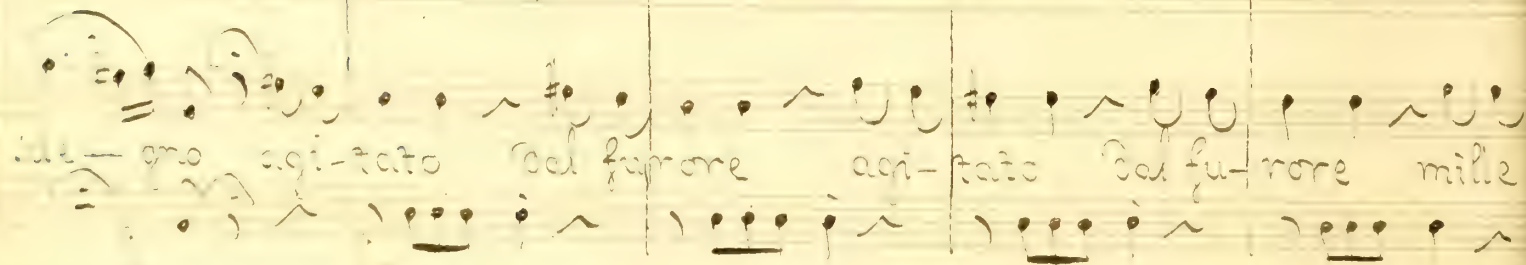 agi-tato dal furore agi-tato dal fu-rore mille